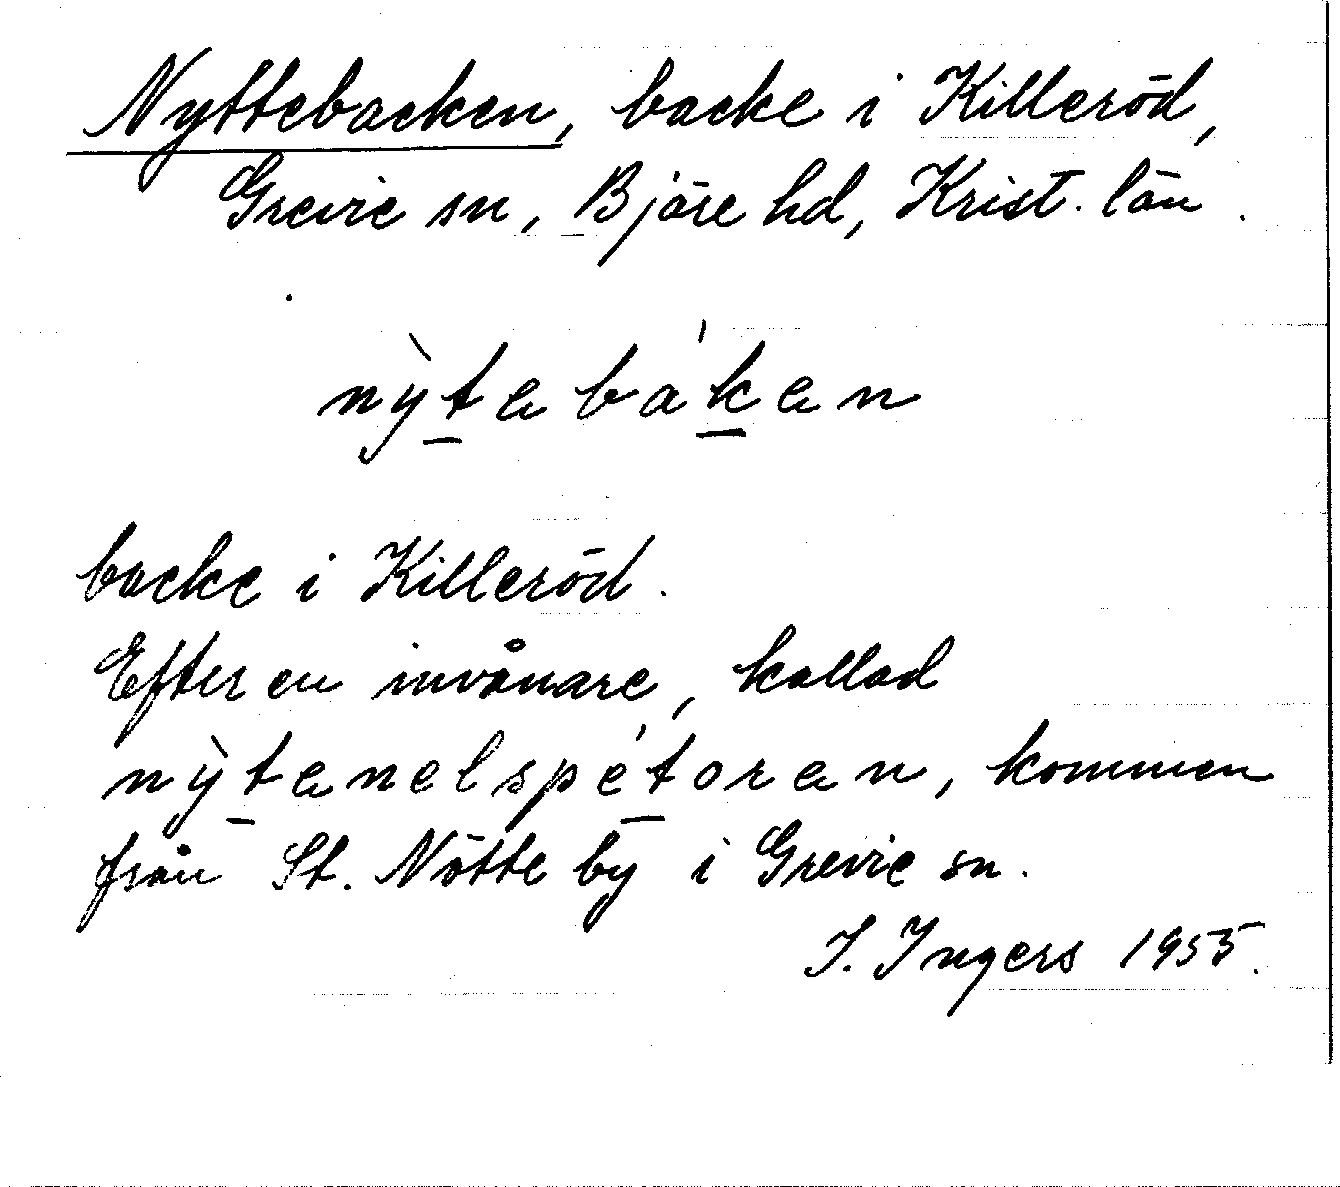 Nyttebacken, backe i Killeröd,
Grevie sn, Bjäre hd, Krist. län.
nỳtebáken
backe i Killeröd.
Efter en invånare, kallad
nỳtenelspétoren, kommen
från St. Nötte by i Grevie sn.
I. Ingers 1955.